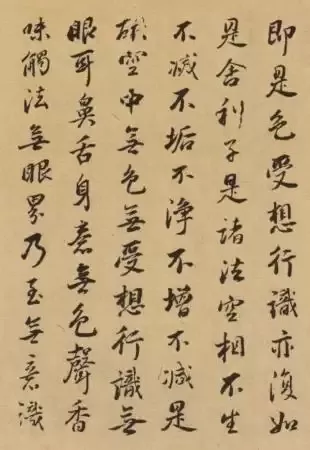 即是色受想行識亦復如
是舍利子是諸法空相不生
不滅不垢不淨不增不減是
故空中無色無受想行識無
眼耳鼻舌身意無色聲香
味觸法無眼界乃至無意識